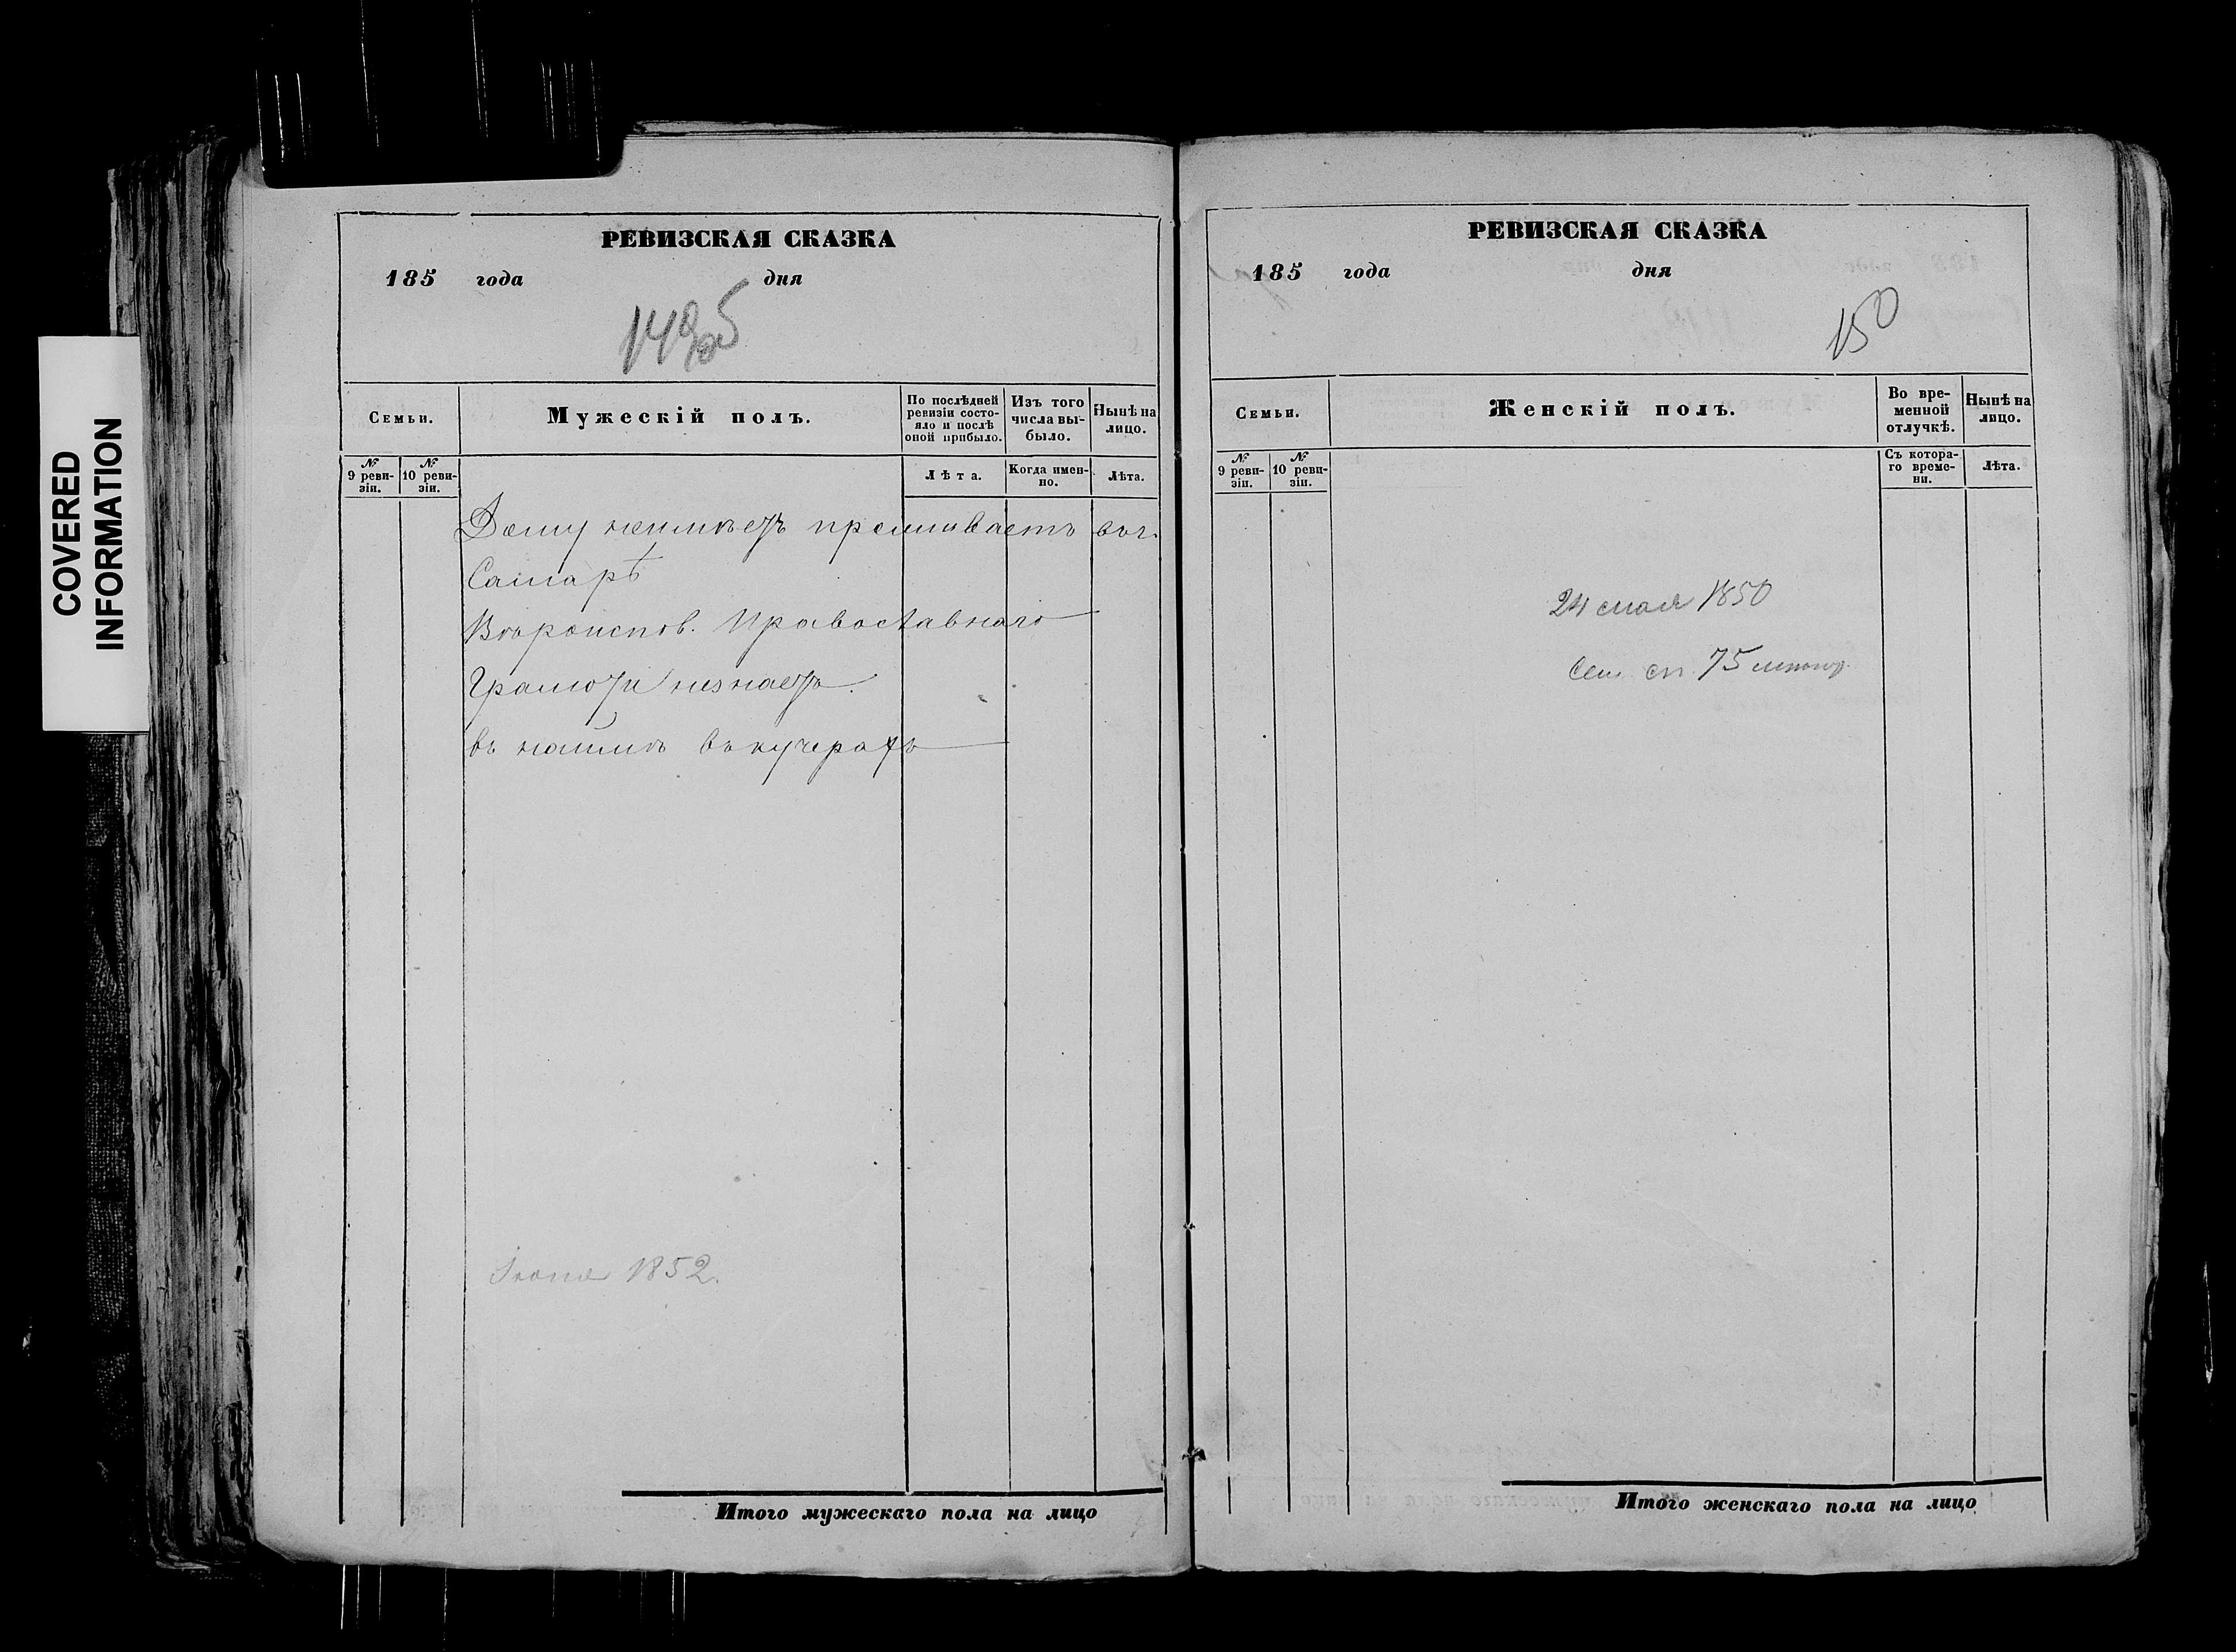 COVERED
INFORMATION
РЕВИЗСКАЯ СКАЗКА
185 года дня
Семьи.
Мужескій полъ.
По послѣдней ревизіи состо-
яло и послѣ оной прибыло.
Изъ того числа вы-
было.
Нынѣ на лицо.
№ 9 реви-
зіи.
№ 10 реви-
зіи.
Лѣта.
Когда имен-
но.
Лѣта.
Дому неимѣетъ проживаетъ въ г.
Самарѣ
Вѣроиспов. Православнаго
Грамоти незнаетъ.
въ наймѣ въ кучерахъ
Іюня 1852.
Итого мужескаго пола на лицо
РЕВИЗСКАЯ СКАЗКА
185 года дня
150
Семьи.
Женскій полъ.
Во вре-
менной
отлучкѣ.
Нынѣ на
лицо.
№ 9 реви-
зіи.
№ 10 реви-
зіи.
Съ котора-
го време-
ни.
Лѣта.
24 мая 1850
Сем. сп. 75
Итого женскаго пола на лицо